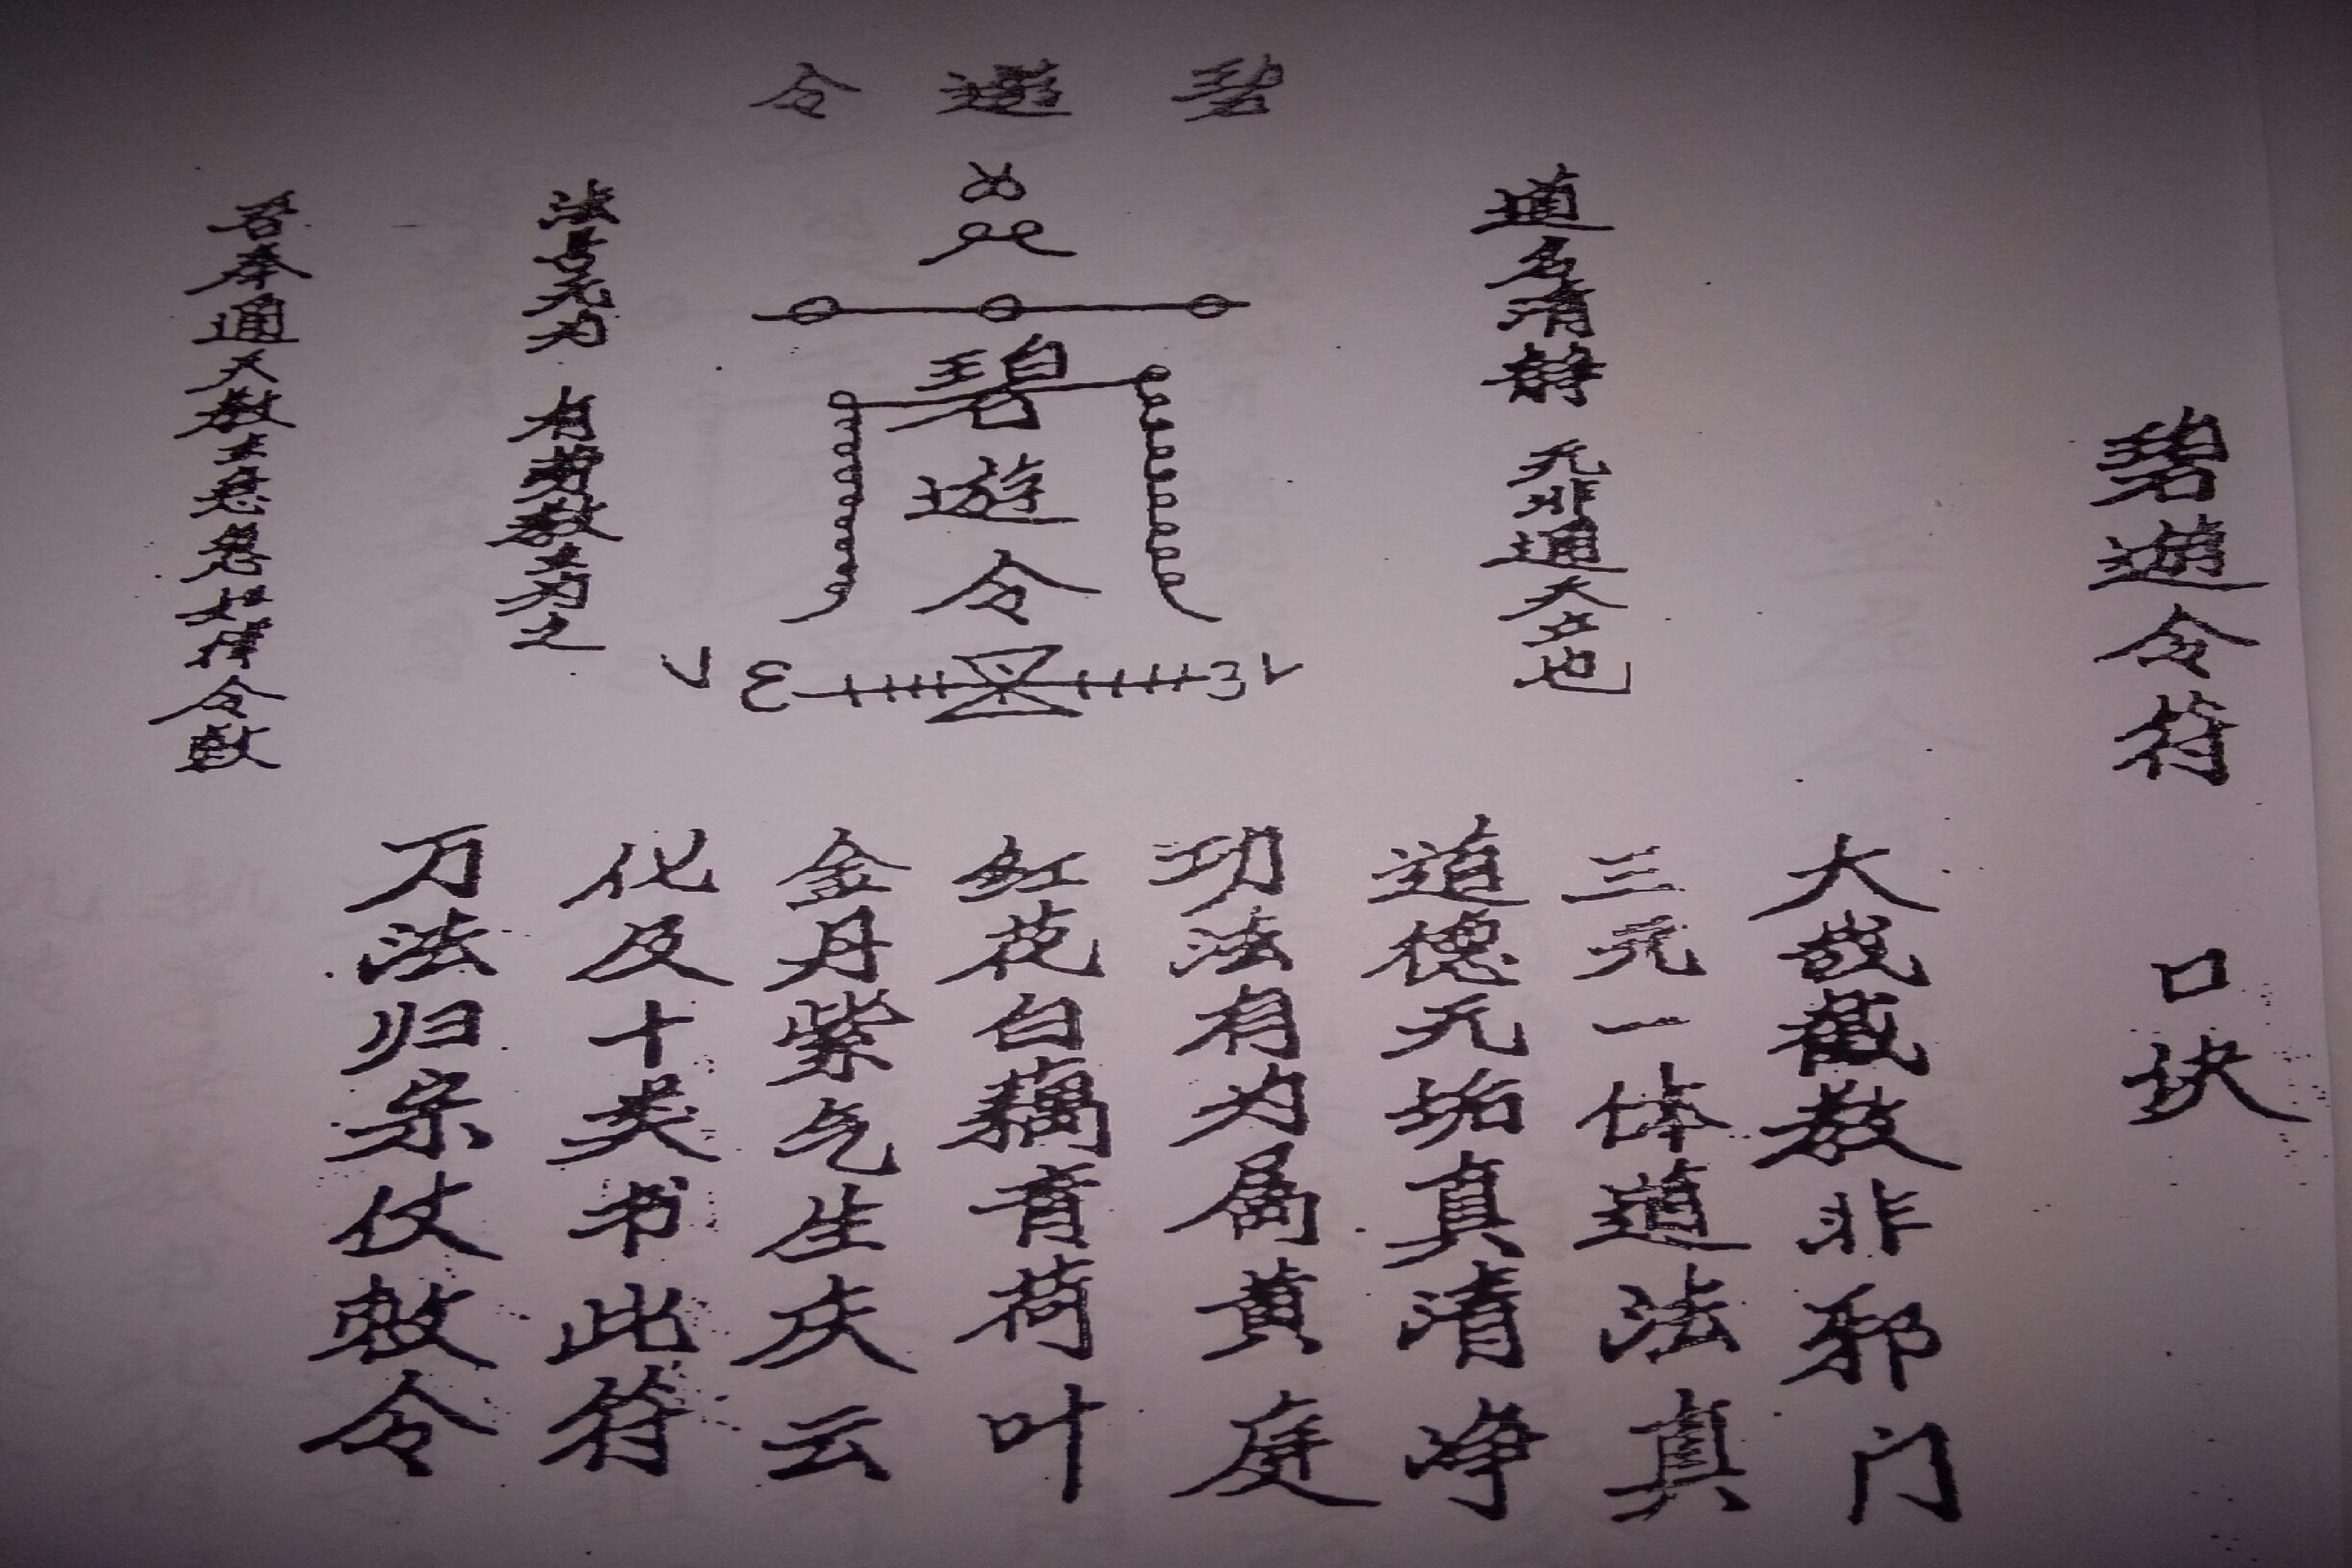 碧遊令符 口诀
碧遊令
道名清静 无非通天也
碧遊令
法无为 有劳教主为之
吾奉通天教主急急如律令敕
大哉截教非邪门
三元一体道法真
道德无垢真清净
功法有为属黄庭
红花白藕青荷叶
金丹紫气生庆云
化及十类书此符
万法归宗仗敕令